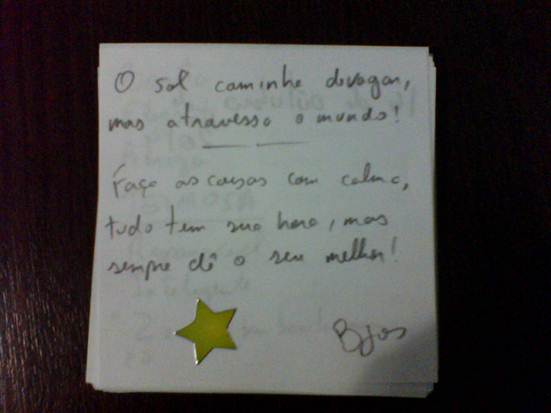 O sol caminha devagar,
mas atravessa o mundo!
Faça as coisas com calma,
tudo tem sua hora, mas
sempre dê o seu melhor!
Bjos